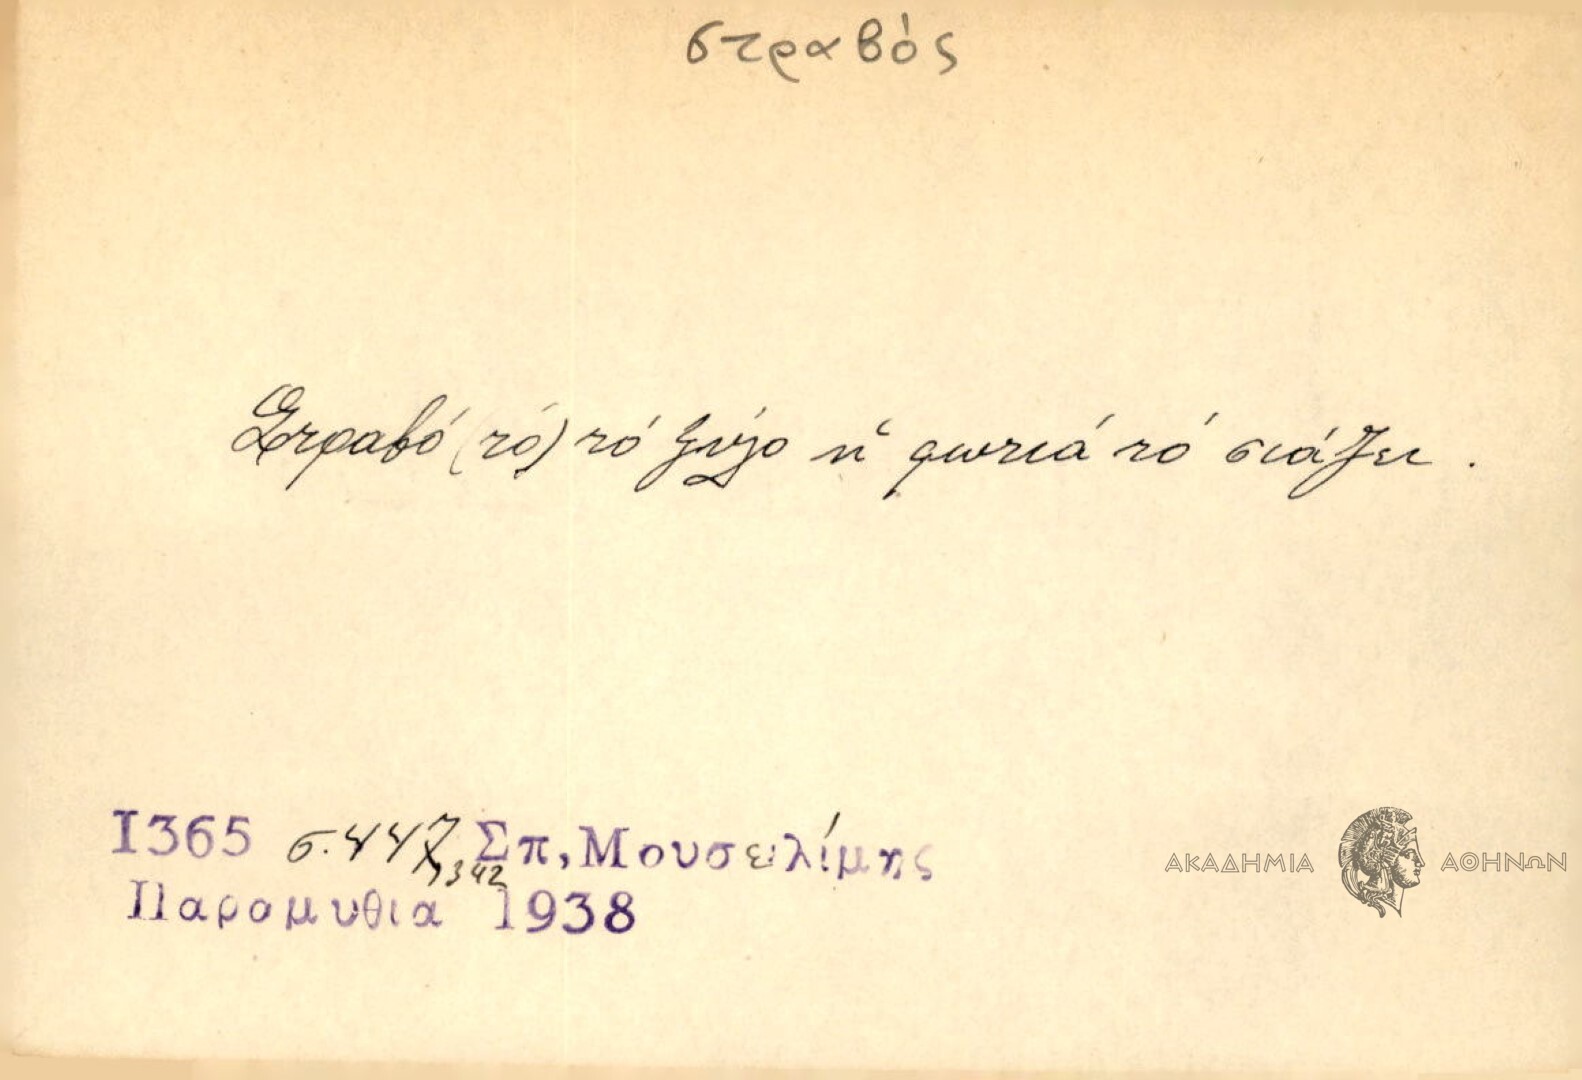 στραβός
Στραβό (τό) τό ξύλο ἡ φωτιά τό σιάζει.
Ι365 σ. 447, 1342 Σπ, Μουσελίμης
Παραμυθια 1938
ΑΚΑΔΗΜΙΑ ΑΘΗΝΩΝ